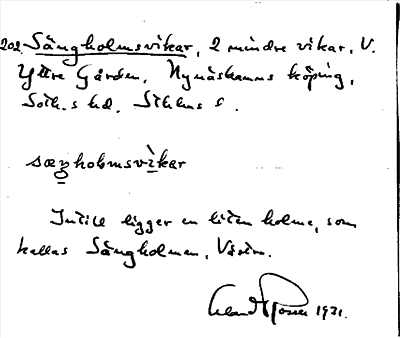 202. Sängholmsvikar, 2 mindre vikar, V.
Yttre Gården, Nynäshamns köping,
Soth.s hd, Sthlms l.
sæŋholmsvìkar
Intill ligger en liten holme, som
kallas Sängholmen,
1931.